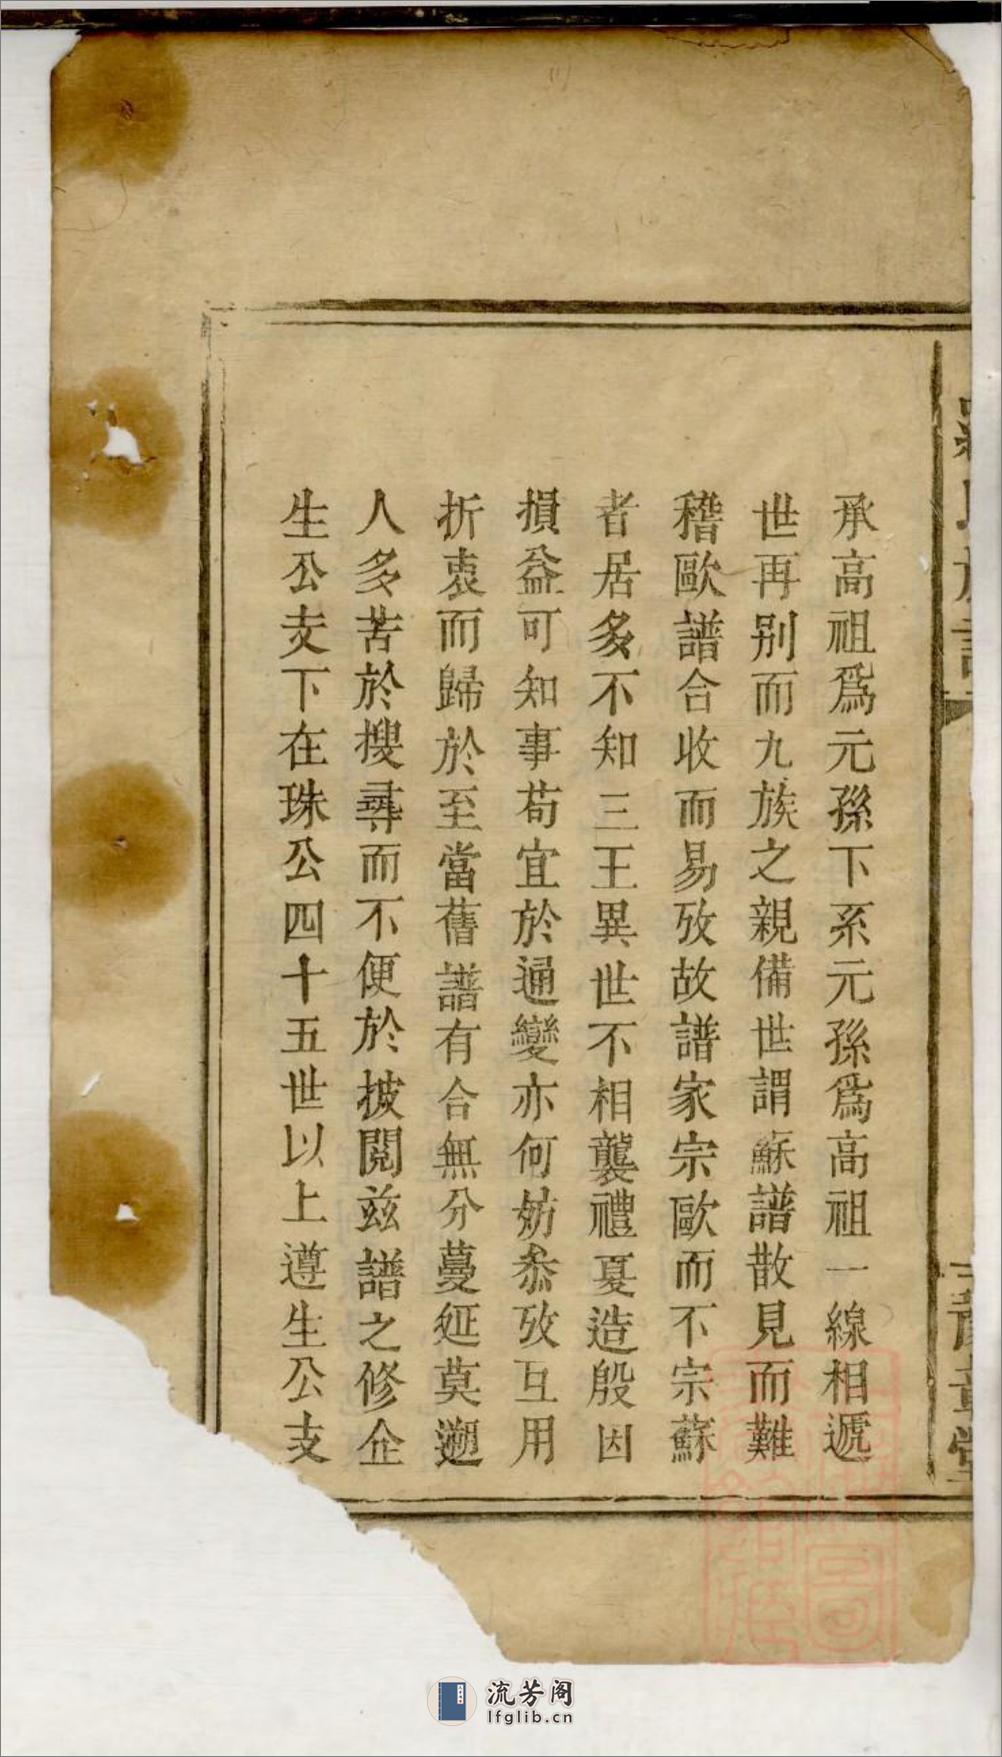 羅氏族譜
豫章堂
承高祖爲元孫下系元孫爲高祖一線相遞
世再别而九族之親備世謂蘇譜散見而難
稽歐譜合收而易攷故譜家宗歐而不宗蘇
者居多不知三王異世不相襲禮夏造殷因
損益可知事苟宜於通變亦何妨叅攷互用
折衷而歸於至當舊譜有合無分蔓延莫遡
人多苦於搜尋而不便於披閱兹譜之修企
生公支下在珠公四十五世以上遵生公支
流芳阁
lfglib.cn